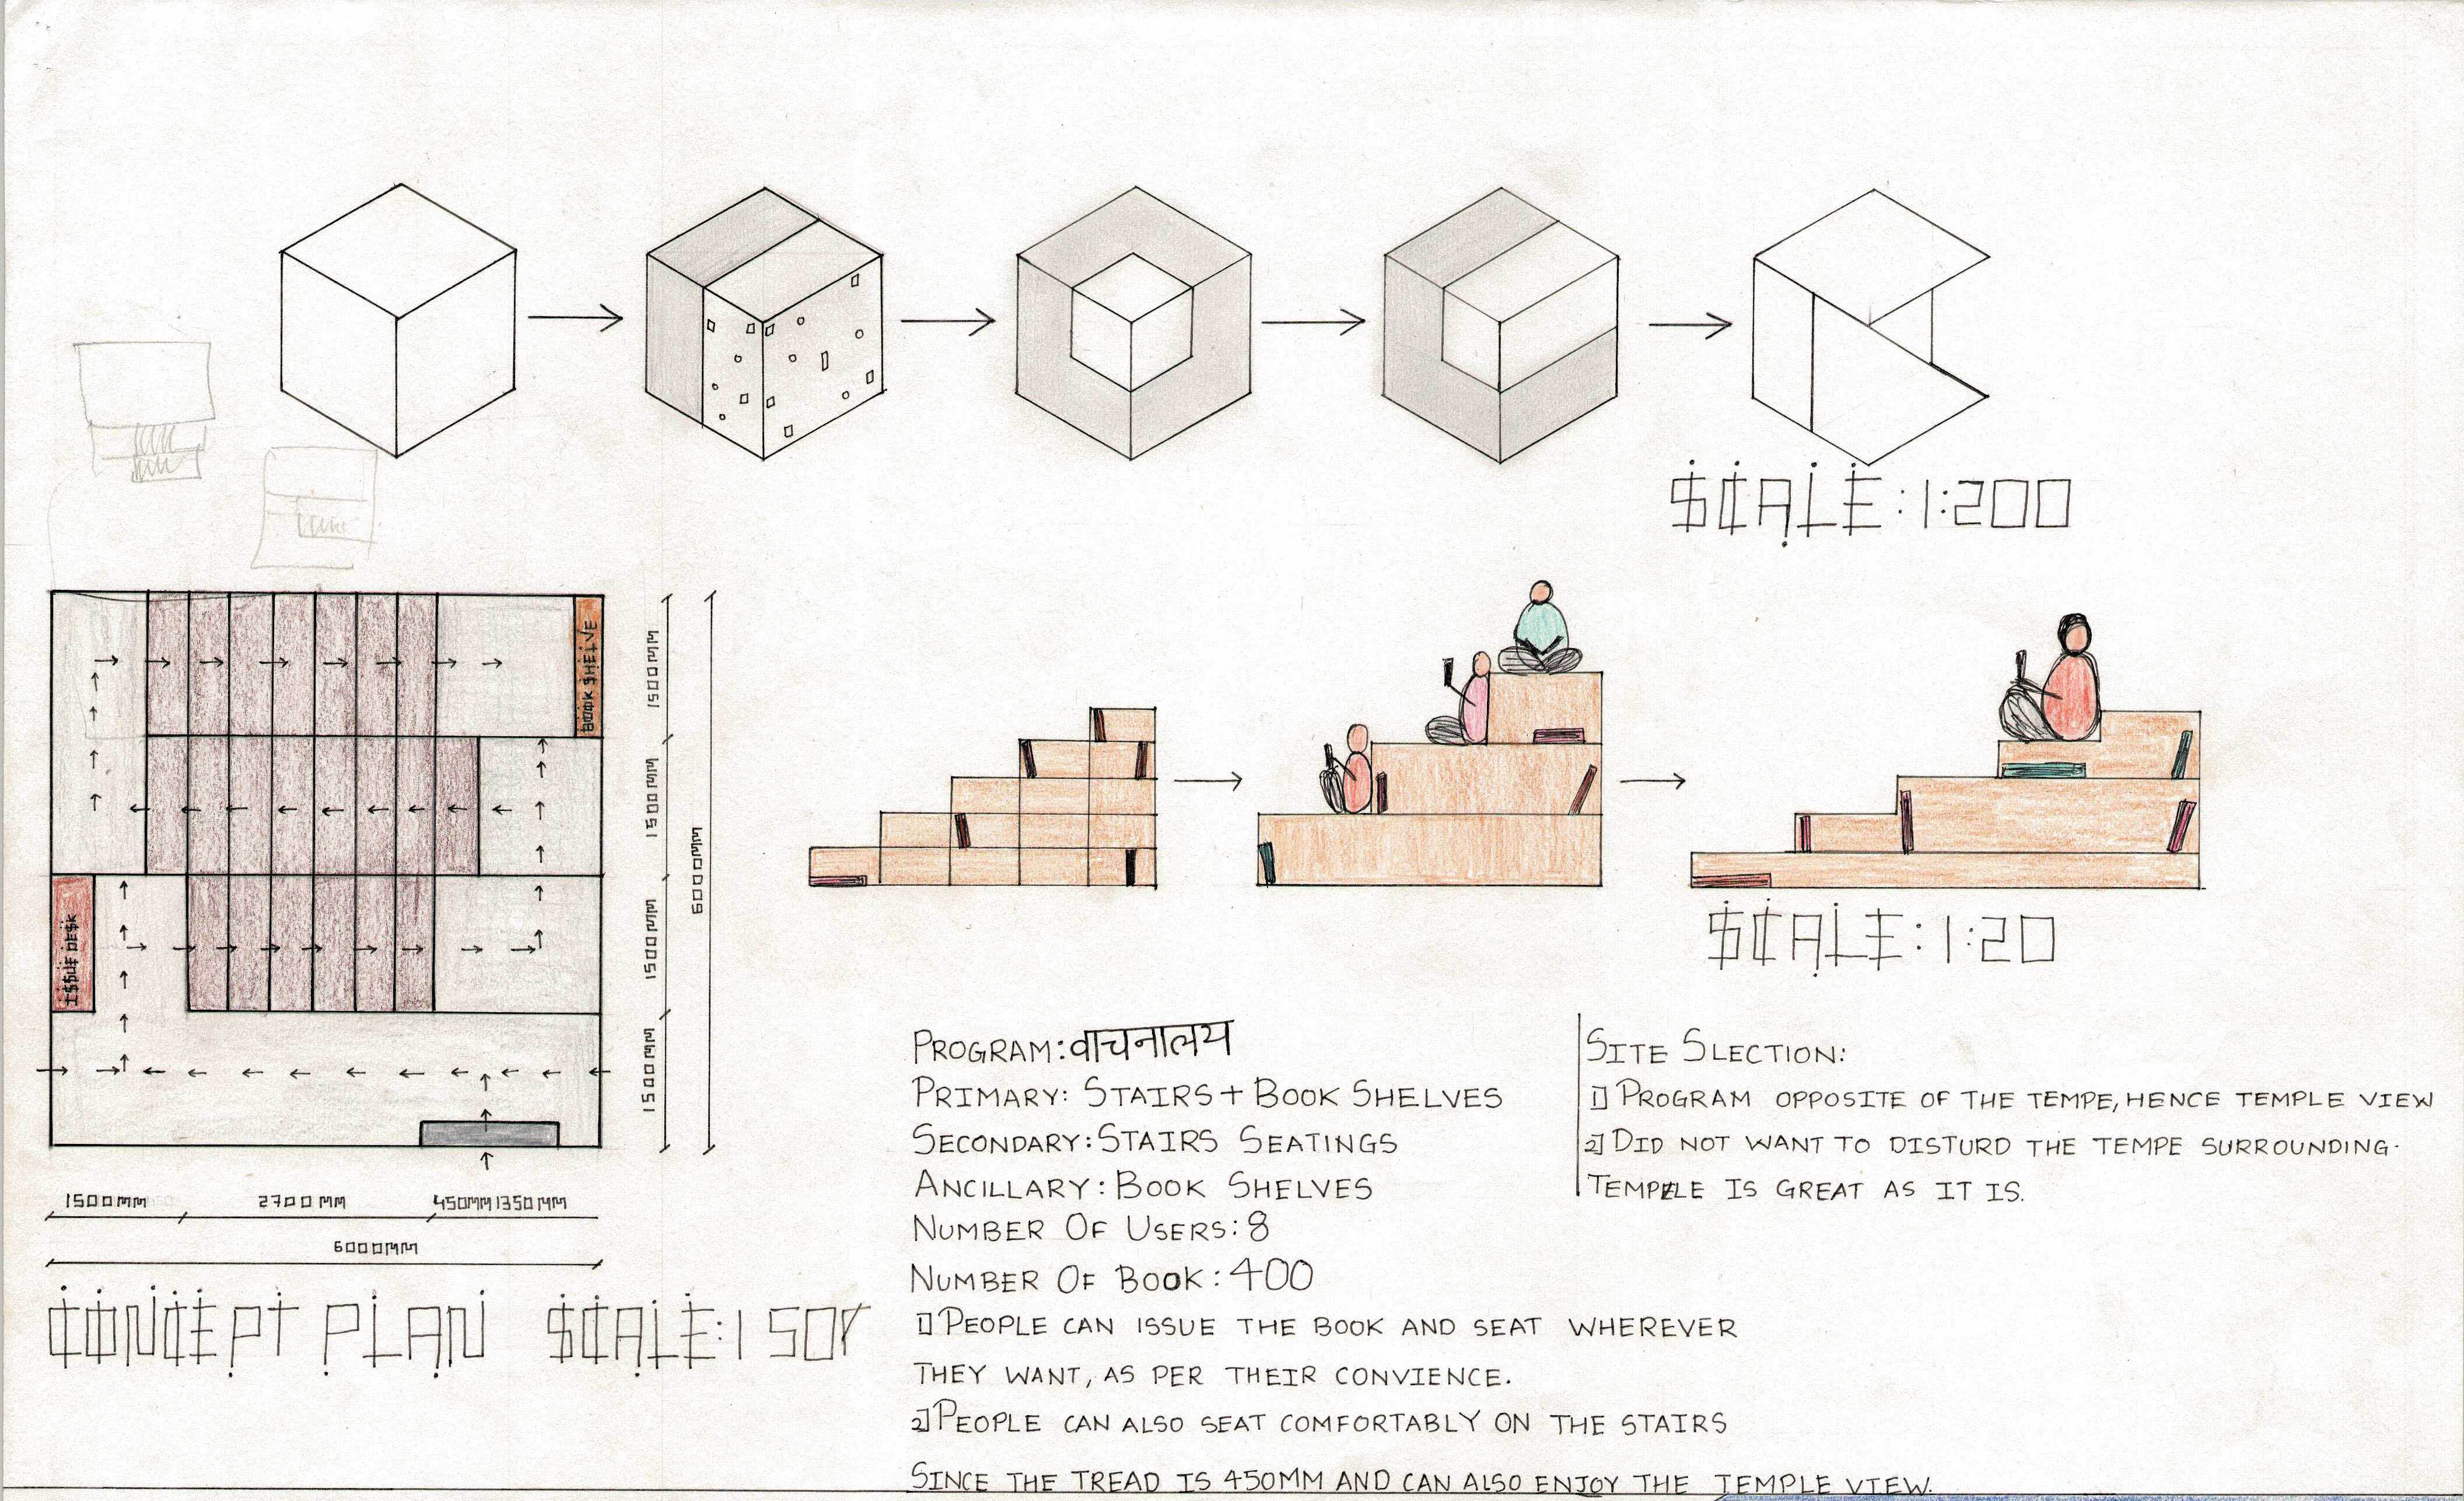 SCALE:1:200
BOOK SHELVE
ISSUE DESK
1500MM
1500MM
1500MM
1500MM
6000MM
1500MM 2700MM 450MM 1350MM
6000MM
CONCEPT PLAN SCALE:1
SCALE:1:20
PROGRAM:वाचनालय
PRIMARY: STAIRS+BOOK SHELVES
SECONDARY:STAIRS SEATINGS
ANCILLARY:BOOK SHELVES
NUMBER OF USERS:8
NUMBER OF BOOK:400
1]PEOPLE CAN ISSUE THE BOOK AND SEAT WHEREVER
THEY WANT, AS PER THEIR CONVIENCE.
2]PEOPLE CAN ALSO SEAT COMFORTABLY ON THE STAIRS
SINCE THE TREAD IS 450MM AND CAN ALSO ENJOY THE TEMPLE VIEW.
SITE SLECTION:
1] PROGRAM OPPOSITE OF THE TEMPE, HENCE TEMPLE VIEW
2] DID NOT WANT TO DISTURD THE TEMPE SURROUNDING.
TEMPLE IS GREAT AS IT IS.